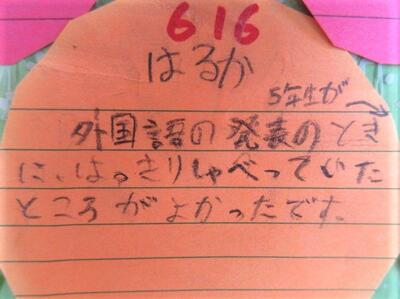 616
はるか
5年生が
外国語の発表のとき
に、はっきりしゃべっていた
ところがよかったです。